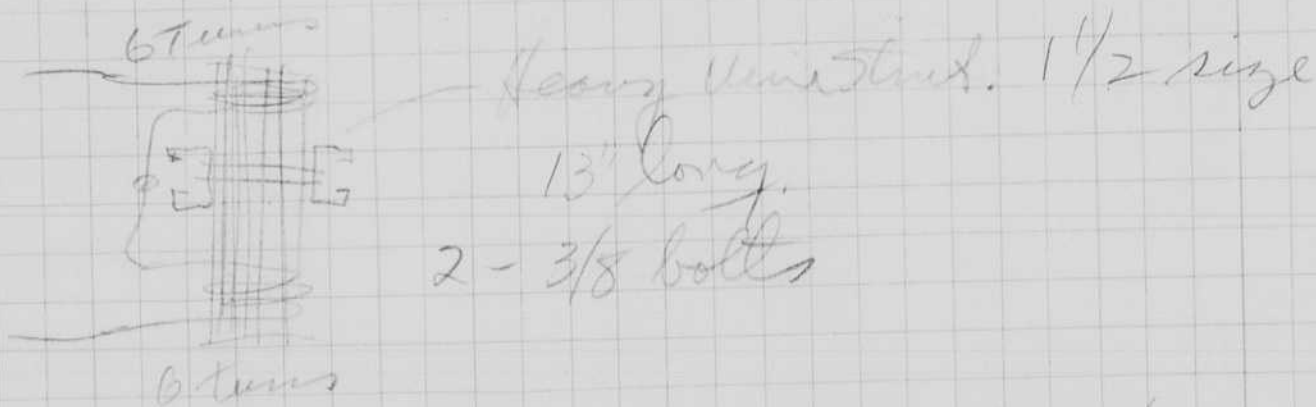 6 Turns
Heavy Unistrut. 1 1/2 size
13" long.
2 - 3/8 bolts
6 turns